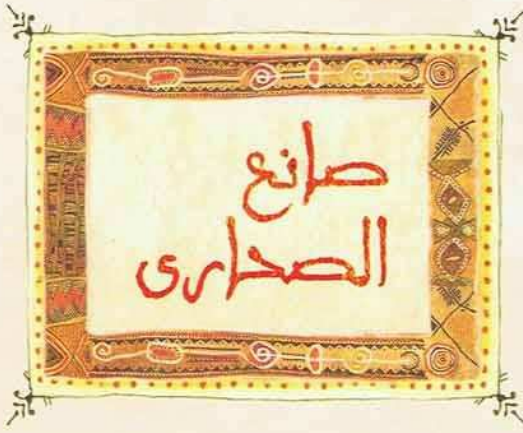 صانع
الصحارى